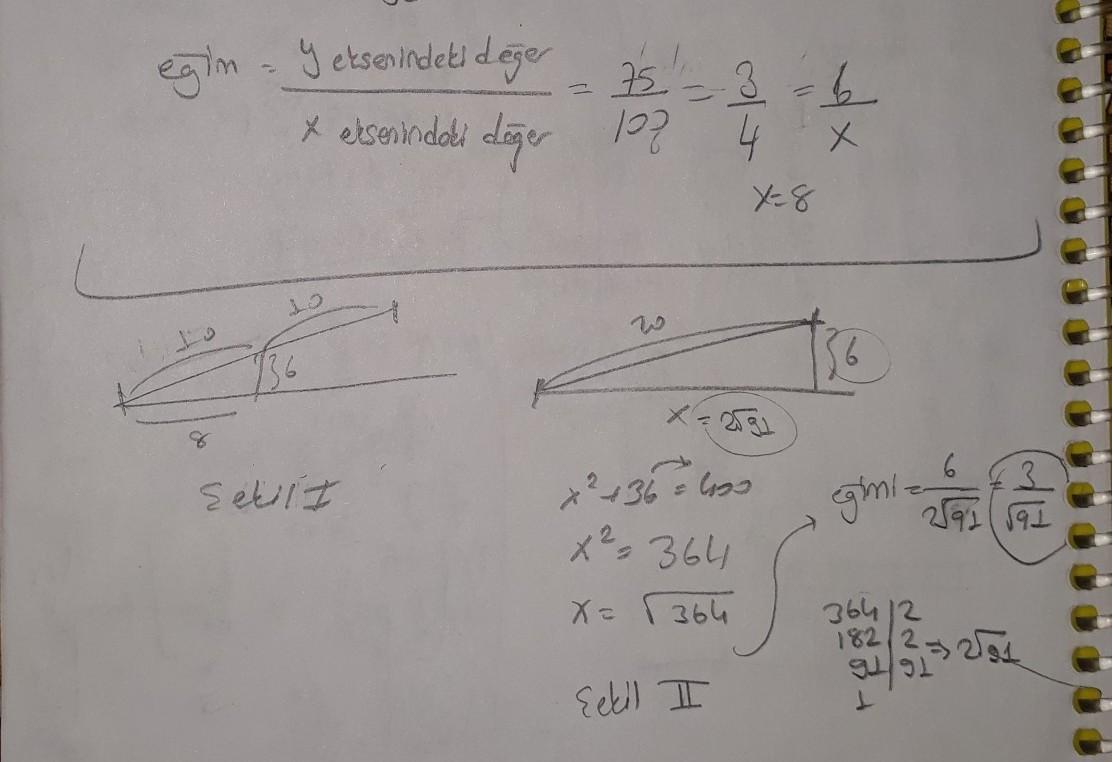 eğim = y eksenindeki değer / x eksenindeki değer = 75 / 10? = 3 / 4 = 6 / x
x=8
10 10
6
8
Şekil I
20
6
x = 2√91
x²+36=400
x² = 364
x = √364
Şekil II
eğimi = 6 / 2√91 = 3 / √91
364 | 2
182 | 2 ⇒ 2√91
91 | 91
1